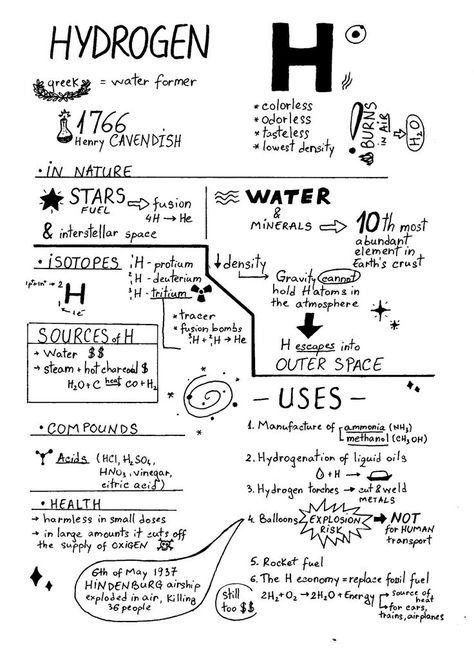 HYDROGEN
H
greek = water former
1766
Henry CAVENDISH
* colorless
* odorless
* tasteless
* lowest density
! BURNS
in AIR
→ H₂O
• IN NATURE
STARS ⇒ fusion
FUEL
4H → He
& interstellar space
WATER
&
MINERALS ⇒ 10th most
abundant
element in
Earth's crust
• ISOTOPES
H - protium
H - deuterium
H - tritium
H
1e⁻
* tracer
* fusion bombs
H + H → He
↓ density
Gravity cannot
hold H atoms in
the atmosphere
H escapes into
OUTER SPACE
SOURCES of H
→ Water $$
→ steam + hot charcoal $
H₂O+C heat CO+H₂
• COMPOUNDS
Acids (HCl, H₂SO₄,
HNO₃, vinegar,
citric acid)
• HEALTH
→ harmless in small doses
→ in large amounts it cuts off
the supply of OXiGEN
6th of May 1937
HINDENBURG airship
exploded in air, killing
36 people
- USES -
1. Manufacture of ammonia (NH₃)
methanol (CH₃OH)
2. Hydrogenation of liquid oils
+ H →
3. Hydrogen torches → cut & weld
METALS
4. Balloons EXPLOSION
RISK → NOT
for HUMAN
transport
5. Rocket fuel
6. The H economy = replace fossil fuel
2H₂+O₂ → 2H₂O + Energy → source of
heat
→ for cars,
trains, airplanes
still
too $$